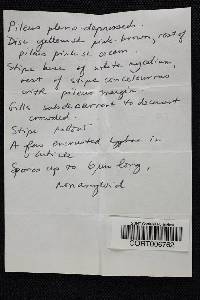 Pileus plano-depressed.
Disc yellowish pink-brown, rest of
pileus pinkish cream.
Stipe base of white mycelium,
rest of stipe concolourous
with pileus margin
Gills subdecurrent to decurrent
crowded.
Stipe
A few encrusted hyphae in
cuticle
Spores up to 6µm long,
nonamyloid
CORT006762